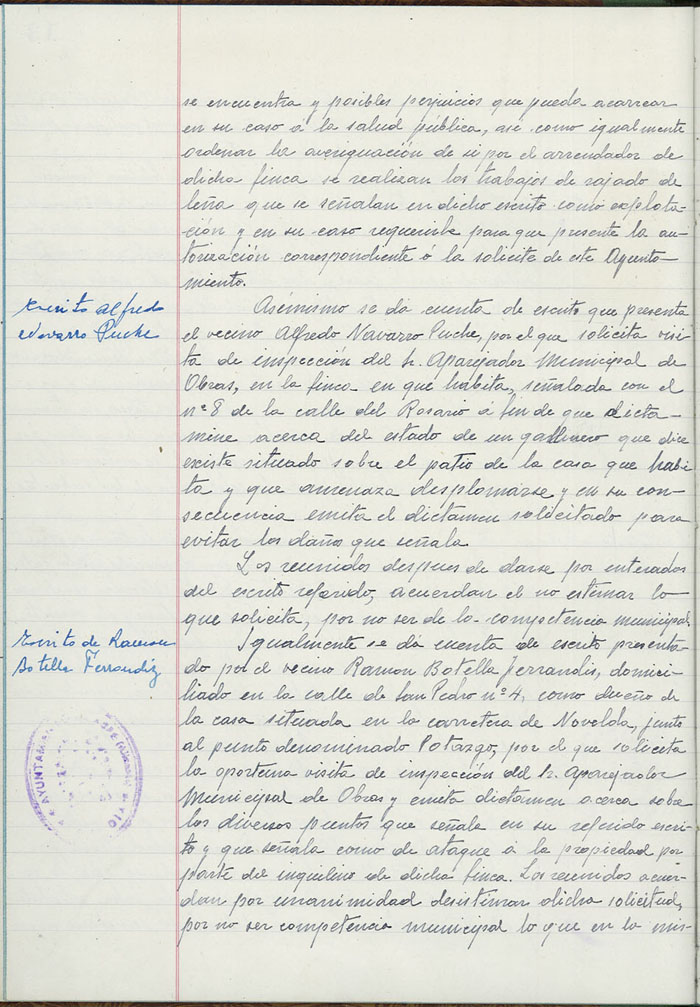 se encuentra y posibles perjuicios que pueda acarrear
en su caso á la salud pública, asi como igualmente
ordenar la averiguación de si por el arrendador de
dicha finca se realizan los trabajos de rajado de
leña que se señalan en dicho escrito como explota-
ción y en su caso requerirle para que presente la au-
torización correspondiente ó la solicite de este Ayunta-
miento.
Escrito Alfredo
Navarro Puche
Asimismo se da cuenta de escrito que presenta
el vecino Alfredo Navarro Puche, por el que solicita visi
ta de inspección del Sr. Aparejador Municipal de
Obras, en la finca en que habita, señalada con el
nº 8 de la calle del Rosario á fin de que dicta-
mine acerca del estado de un gallinero que dice
existe situado sobre el patio de la casa que habi
ta y que amenaza desplomarse y en su con-
secuencia emita el dictamen solicitado para
evitar los daños que señala
Los reunidos despues de darse por enterados
del escrito referido, acuerdan el no estimar lo
que solicita, por no ser de la competencia municipal.
Escrito de Ramon
Botella Ferrandiz
Igualmente se da cuenta de escrito presenta-
do por el vecino Ramon Botella Ferrandis, domici-
liado en la calle de San Pedro nº 4, como dueño de
la casa situada en la carretera de Novelda, junto
al punto denominado Potazgo, por el que solicita
la oportuna visita de inspección del Sr. Aparejador
Municipal de Obras y emita dictamen acerca sobre
los diversos puntos que señala en su referido escri-
to y que señala como de ataque á la propiedad por
parte del inquilino de dicha finca. Los reunidos acuer-
dan por unanimidad desestimar dicha solicitud,
por no ser competencia municipal lo que en la mis-
AYUNTAM